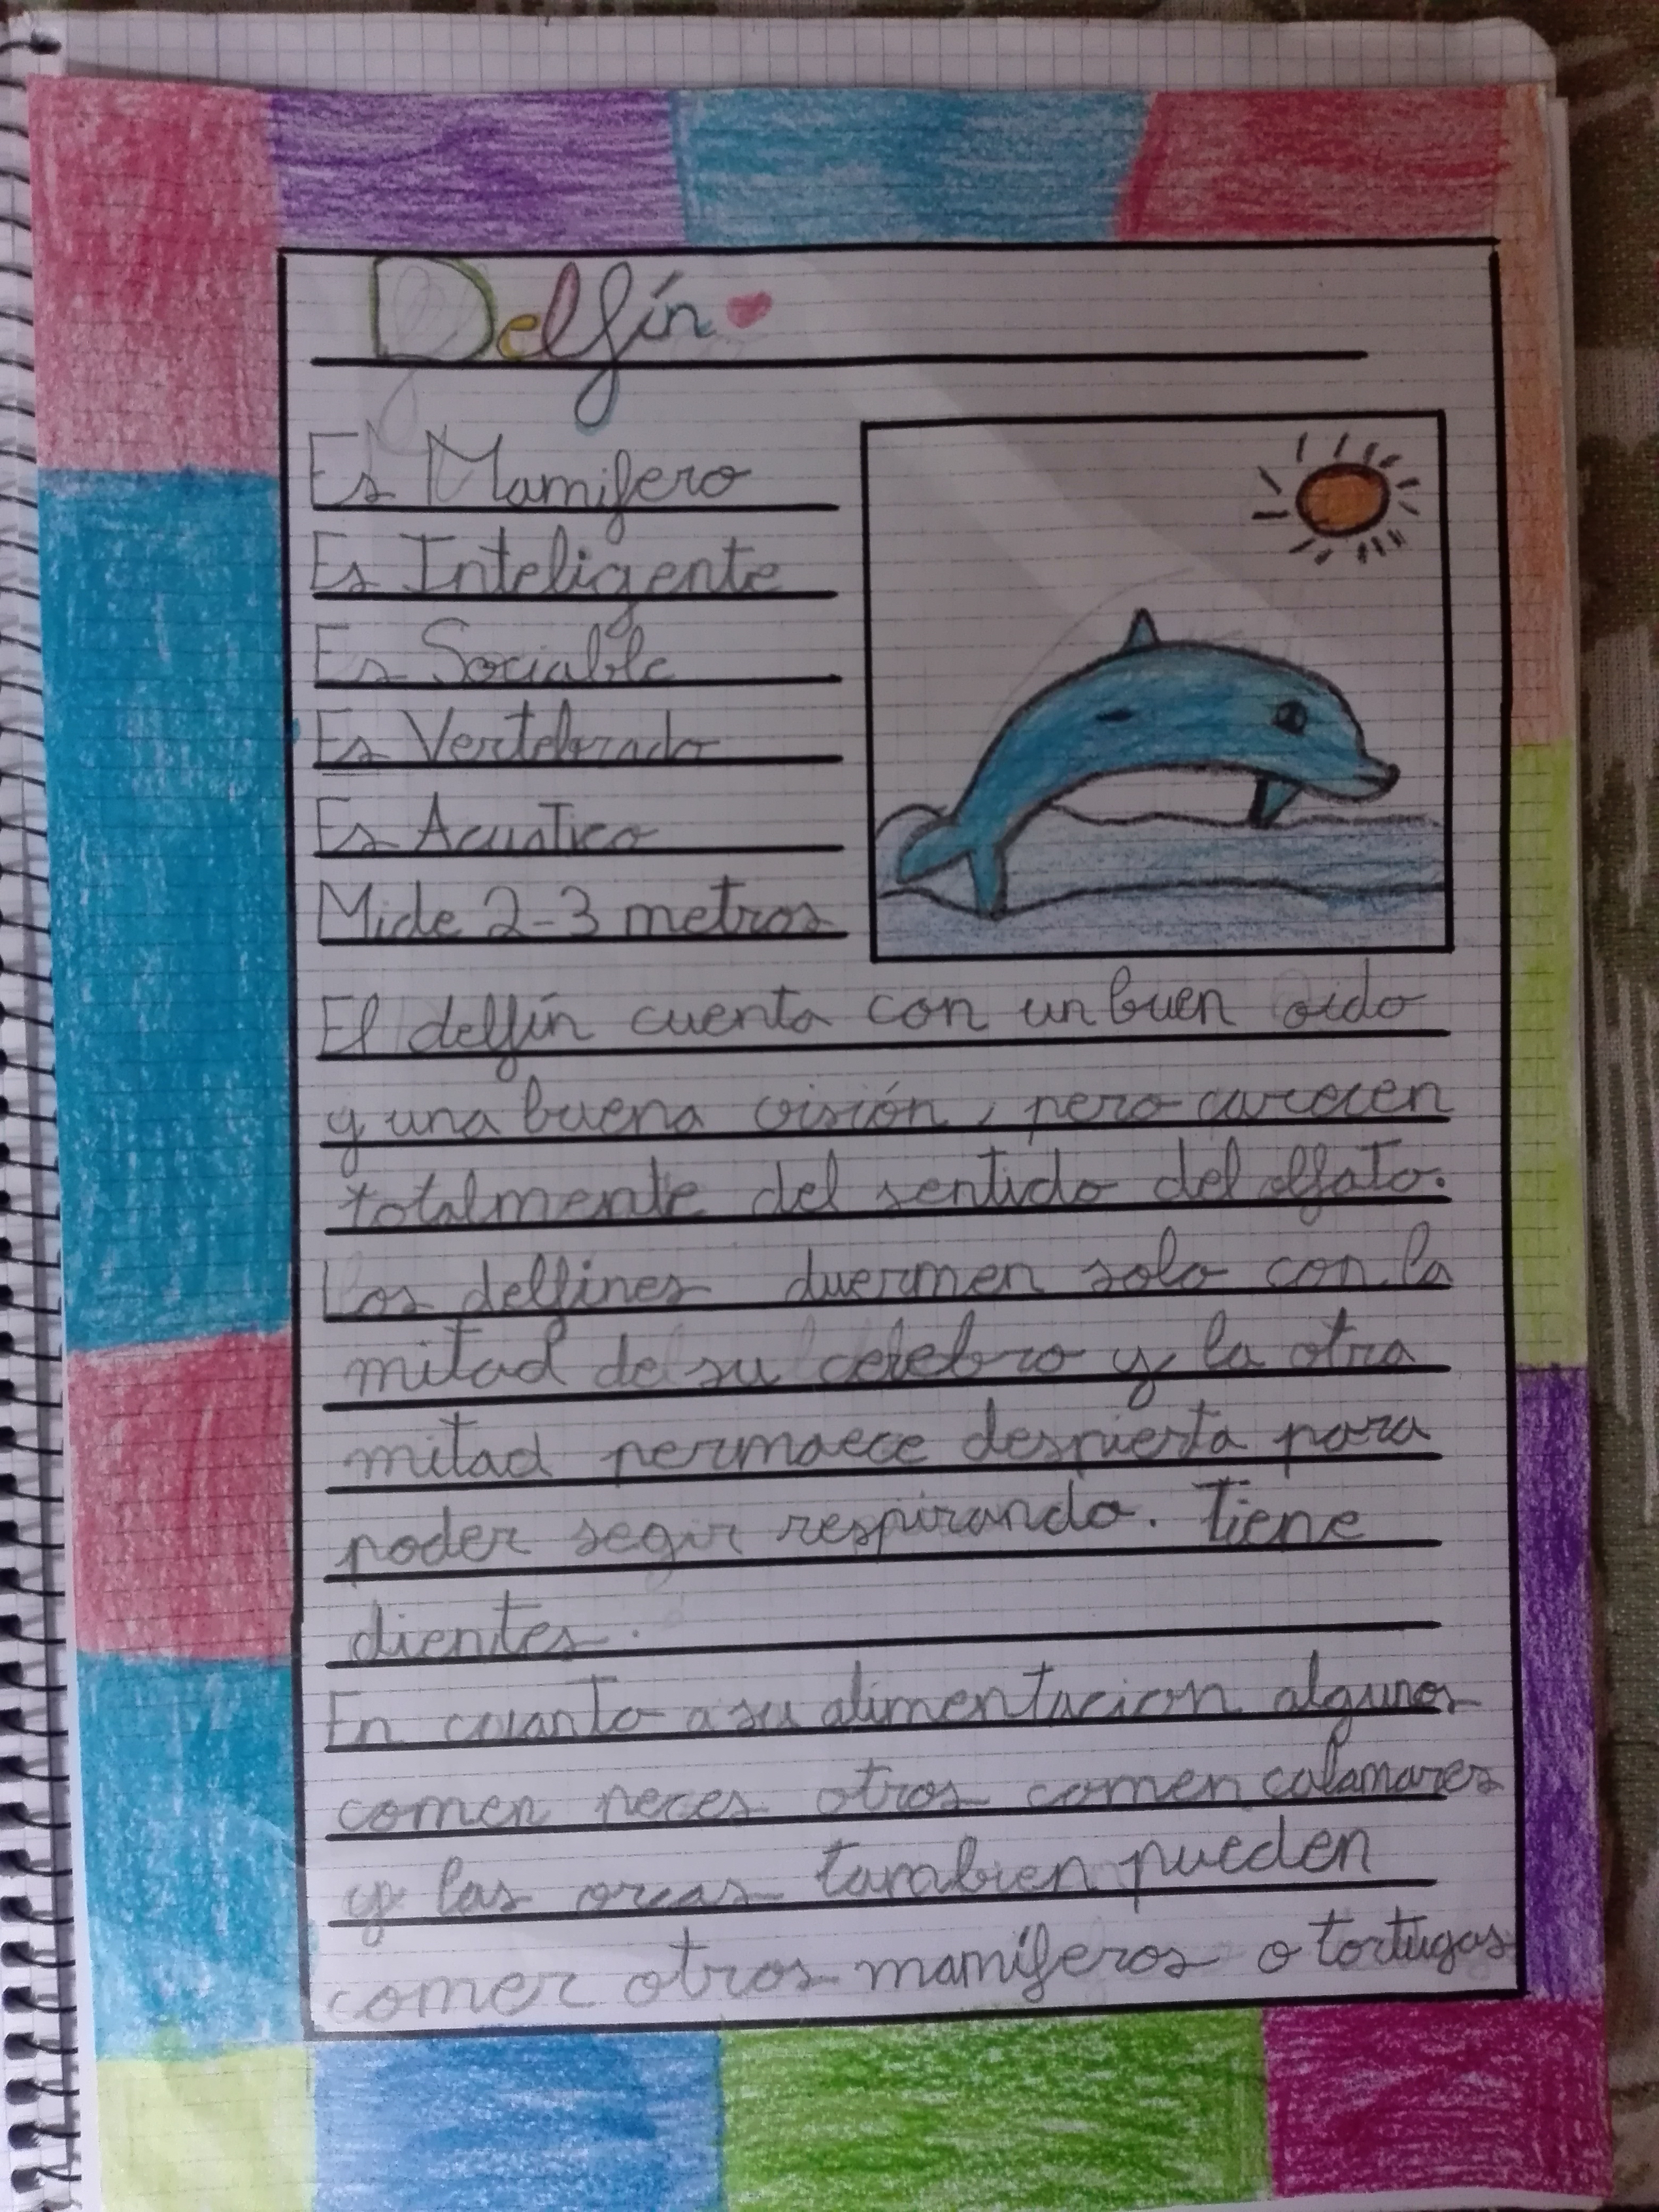 Delfín
Es Mamifero
Es Inteligente
Es Sociable
Es Vertebrado
Es Acustico
Mide 2-3 metros
El delfín cuenta con un buen oido
y una buena visión, pero carecen
totalmente del sentido del olfato.
Los delfines duermen solo con la
mitad de su celebro y la otra
mitad permaece despierta para
poder segir respirando. Tiene
dientes.
En cuanto a su alimentacion algunos
comen peces otros comen calamares
y las orcas tambien pueden
comer otros mamíferos o tortugas